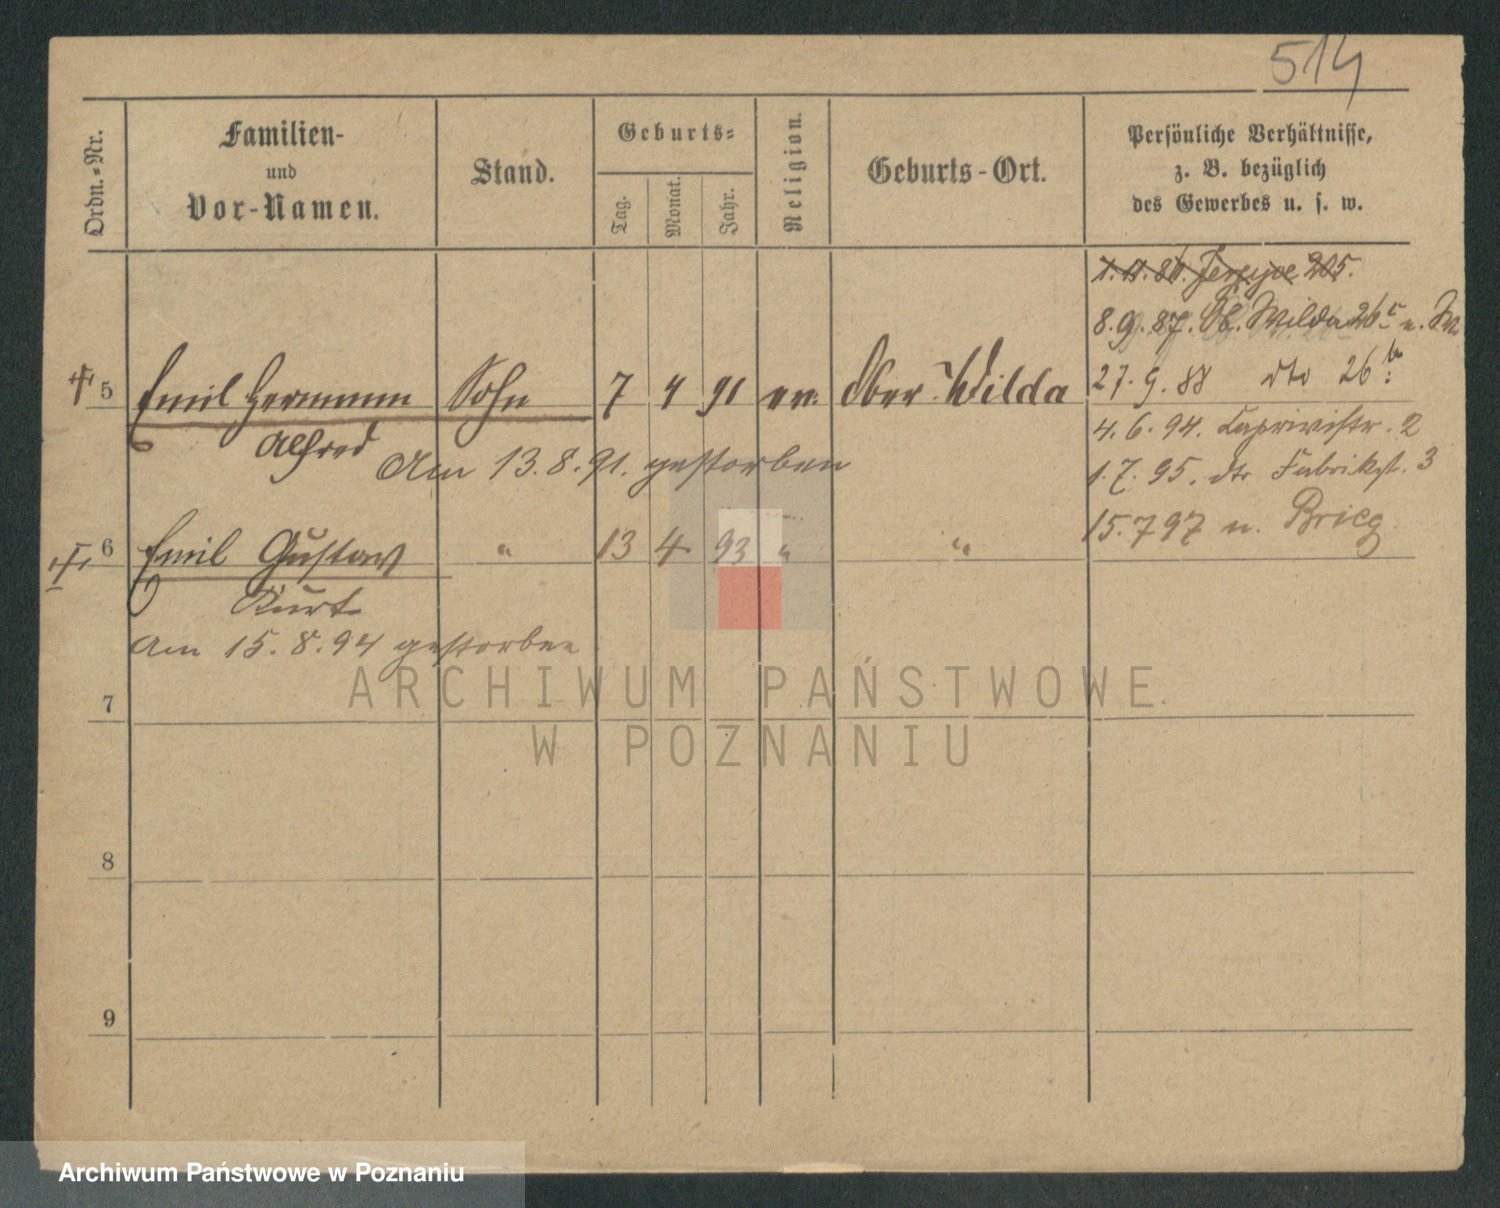 514
Ordn.-Nr.
Familien-
und
Vor-Namen.
Stand.
Geburts-
Tag.
Monat.
Jahr.
Religion.
Geburts-Ort.
Persönliche Verhältnisse,
z. B. bezüglich
des Gewerbes u. s. w.
205.
8.9.87. Ob. Wilda 26 c u. W.
27.9.88 dto 26 b.
4.6.94. Caprivistr. 2
1.7.95. dto Fabrikst. 3
15.7 97 n. Brieg.
5 Emil Hermann Sohn 7 4 91 ev. Ober Wilda
Alfred
Am 13.8.91. gestorben
6 Emil Gustav " 13 4 93 " "
Kurt
Am 15.8.94 gestorben
7
8
9
ARCHIWUM PAŃSTWOWE
W POZNANIU
Archiwum Państwowe w Poznaniu